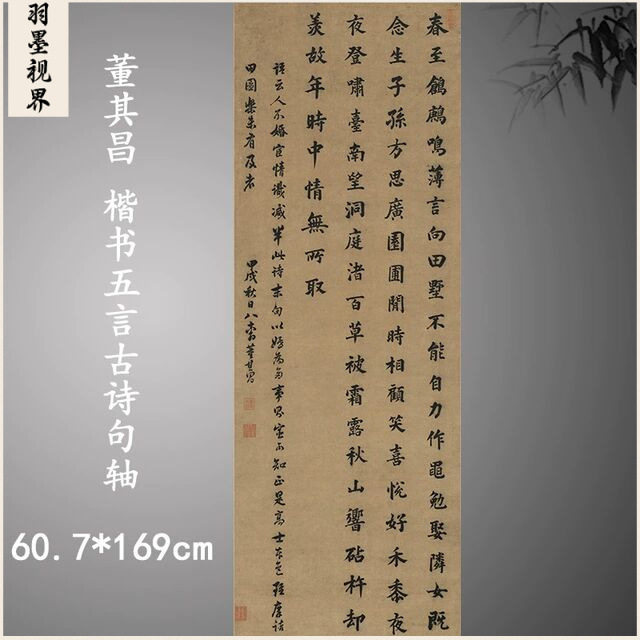 羽墨视界
董其昌 楷书五言古诗句轴
60.7*169cm
春至鶬鶊鳴薄言向田墅不能自力作黽勉娶隣女既
念生子孫方思廣園圃閒時相顧笑喜悅好禾黍夜
夜登嘯臺南望洞庭渚百草被霜露秋山響砧杵却
羨故年時中情無所取
語云人不婚宦情減半此詩末句以婚為事知正是高士本色雖摩詰
田園樂未有及者
甲戌秋日董其昌